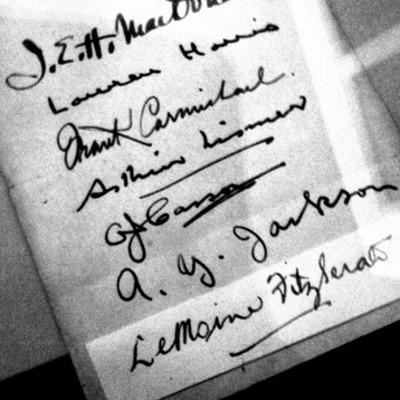 J.E.H. MacDonald
Lawren Harris
Frank Carmichael.
Arthur Lismer
AJ Casson
A. Y. Jackson
LeMoine FitzGerald